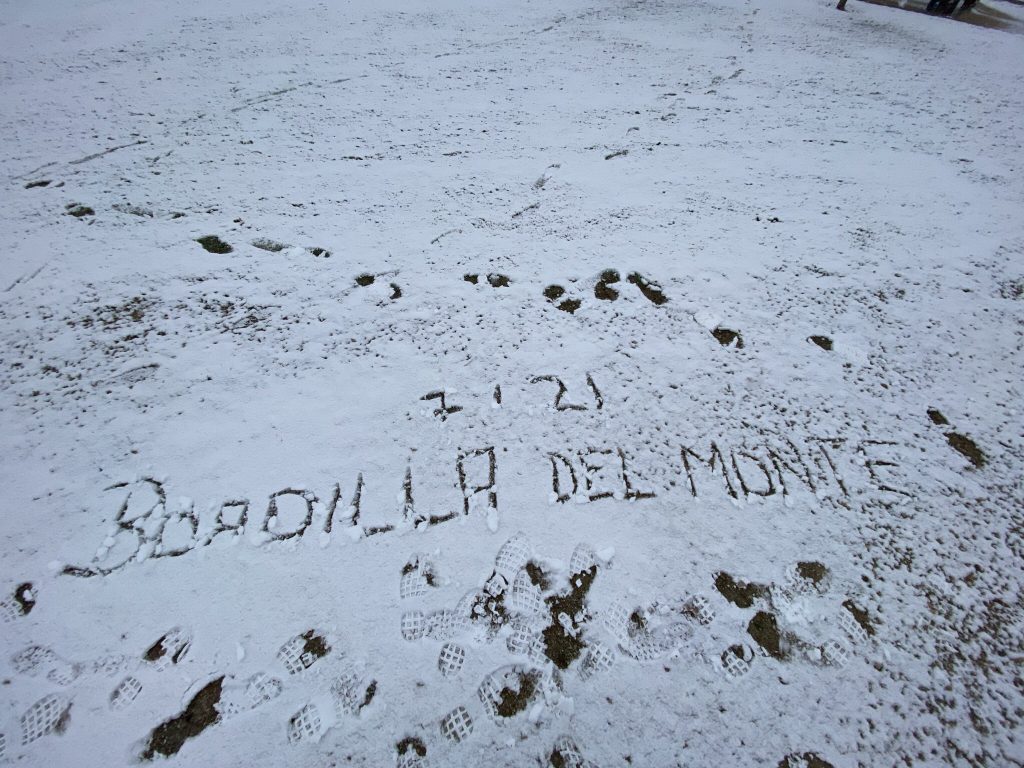 7 1 21
BOADILLA DEL MONTE